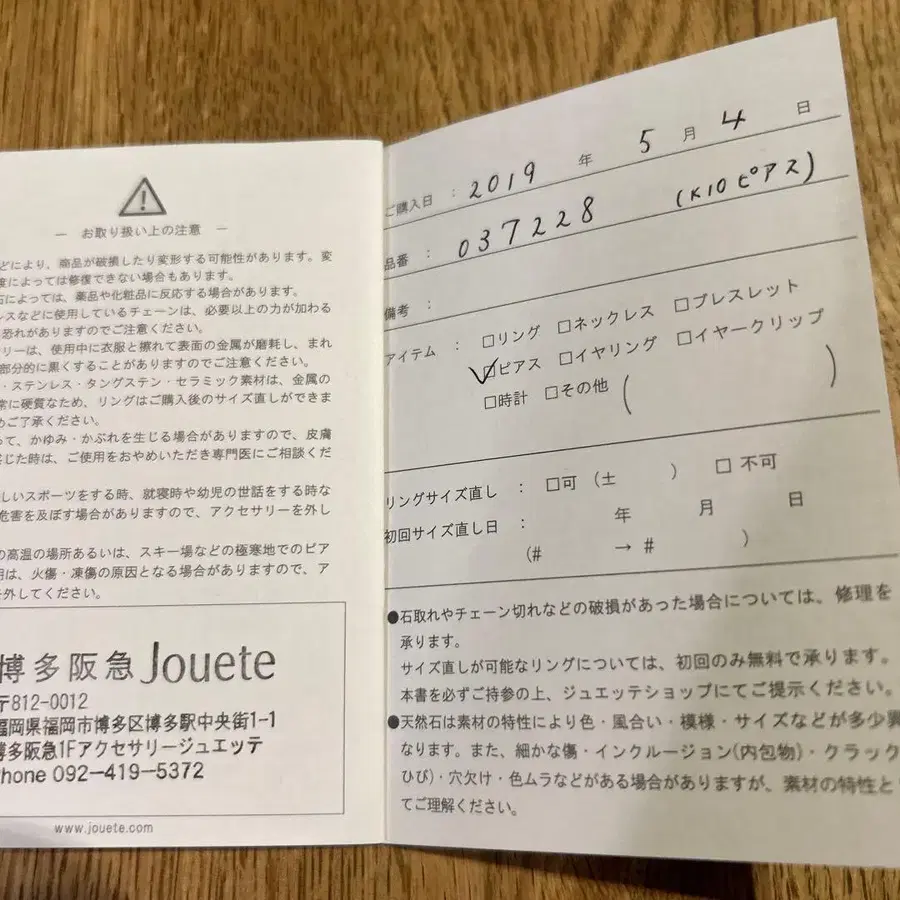 ― お取り扱い上の注意 ―
どにより、商品が破損したり変形する可能性があります。変
度によっては修復できない場合もあります。
石によっては、薬品や化粧品に反応する場合があります。
レスなどに使用しているチェーンは、必要以上の力が加わる
恐れがありますのでご注意ください。
リーは、使用中に衣服と擦れて表面の金属が磨耗し、まれ
部分的に黒くすることがありますのでご注意ください。
・ステンレス・タングステン・セラミック素材は、金属の
常に硬質なため、リングはご購入後のサイズ直しができま
めご了承ください。
って、かゆみ・かぶれを生じる場合がありますので、皮膚
感じた時は、ご使用をおやめいただき専門医にご相談くだ
しいスポーツをする時、就寝時や幼児の世話をする時な
危害を及ぼす場合がありますので、アクセサリーを外し
の高温の場所あるいは、スキー場などの極寒地でのピア
用は、火傷・凍傷の原因となる場合がありますので、ア
を外してください。
博多阪急 Jouete
〒812-0012
福岡県福岡市博多区博多駅中央街1-1
博多阪急1Fアクセサリージュエッテ
phone 092-419-5372
www.jouete.com
ご購入日 : 2019 年 5 月 4 日
品番 : 037228 (K10ピアス)
備考 :
アイテム : □リング □ネックレス □ブレスレット
□ピアス □イヤリング □イヤークリップ
□時計 □その他 ( )
リングサイズ直し : □可 (± ) □不可
初回サイズ直し日 : 年 月 日
(# → # )
●石取れやチェーン切れなどの破損があった場合については、修理を
承ります。
サイズ直しが可能なリングについては、初回のみ無料で承ります。
本書を必ずご持参の上、ジュエッテショップにてご提示ください。
●天然石は素材の特性により色・風合い・模様・サイズなどが多少異
なります。また、細かな傷・インクルージョン(内包物)・クラック
ひび)・穴欠け・色ムラなどがある場合がありますが、素材の特性と
てご理解ください。